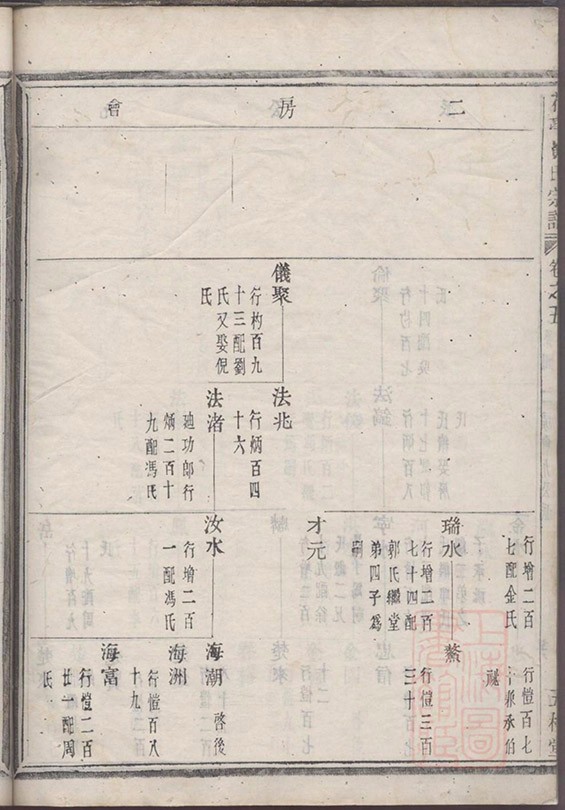 二房會
宗譜
卷之五
行增二百
七配金氏
行愷百七
承伯
瑞水
行增二百
七十四配
郭氏繼堂
弟四子爲
嗣
行愷三百
三十
才元
儀聚
行杓百九
十三配劉
氏又娶倪
氏
法兆
行炳百四
十六
法渚
廸功郎行
炳二百十
九配馮氏
汝水
行增二百
一配馮氏
海潮
啓後
海洲
行愷百八
十九
海富
行愷二百
廿一配周
氏